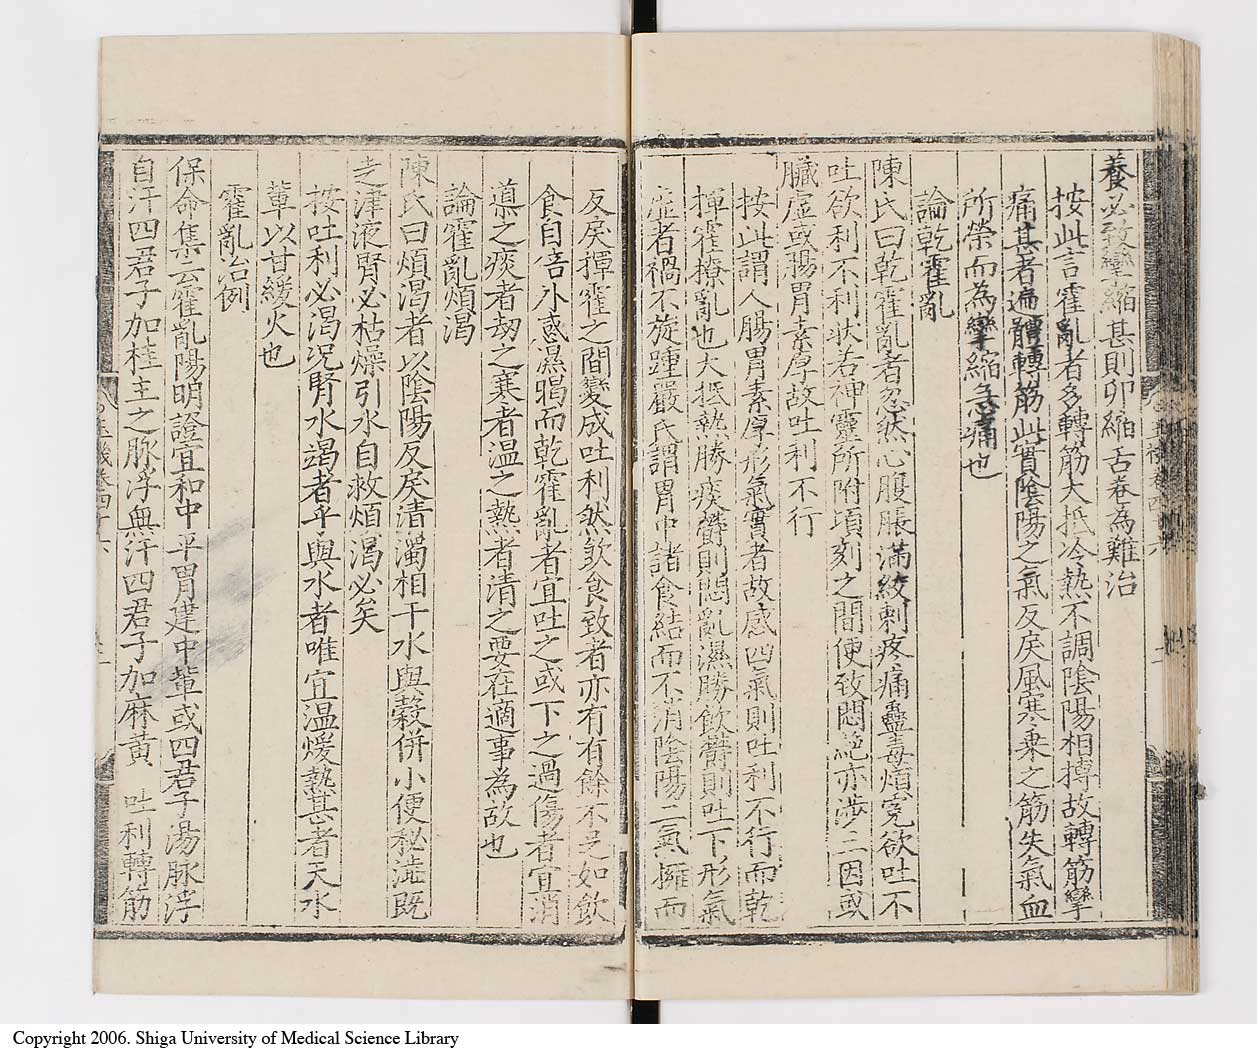 養必致攣縮甚則卵縮舌卷為難治
按此言霍亂者多轉筋大抵冷熱不調陰陽相搏故轉筋攣
痛甚者遍體轉筋此實陰陽之氣反戾風寒乗之筋失氣血
所榮而為攣縮急痛也
論乾霍亂
陳氏曰乾霍亂者忽然心腹脹滿絞刺疼痛蠱毒煩寃欲吐不
吐欲利不利狀若神靈所附頃刻之間便致悶絶亦涉三因或
臟虛或腸胃素厚故吐利不行
按此謂人腸胃素厚形氣實者故感四氣則吐利不行而乾
揮霍撩亂也大抵熱勝痰欝則悶亂濕勝飲欝則吐下形氣
虛者禍不旋踵嚴氏謂胃中諸食結而不消陰陽二氣擁而
反戾揮霍之間變成吐利然飲食致者亦有有餘不足如飲
食自倍外感濕暍而乾霍亂者宜吐之或下之過傷者宜消
導之痰者刼之寒者温之熱者清之要在適事為故也
論霍亂煩渴
陳氏曰煩渴者以陰陽反戾清濁相干水與穀併小便秘澁既
走津液腎必枯燥引水自救煩渴必矣
按吐利必渴况腎水竭者乎與水者唯宜温煖熱甚者天水
軰以甘緩火也
霍亂治例
保命集云霍亂陽明證宜和中平胃建中軰或四君子湯脉浮
自汗四君子加桂主之脉浮無汗四君子加麻黄 吐利轉筋
Copyright 2006. Shiga University of Medical Science Library